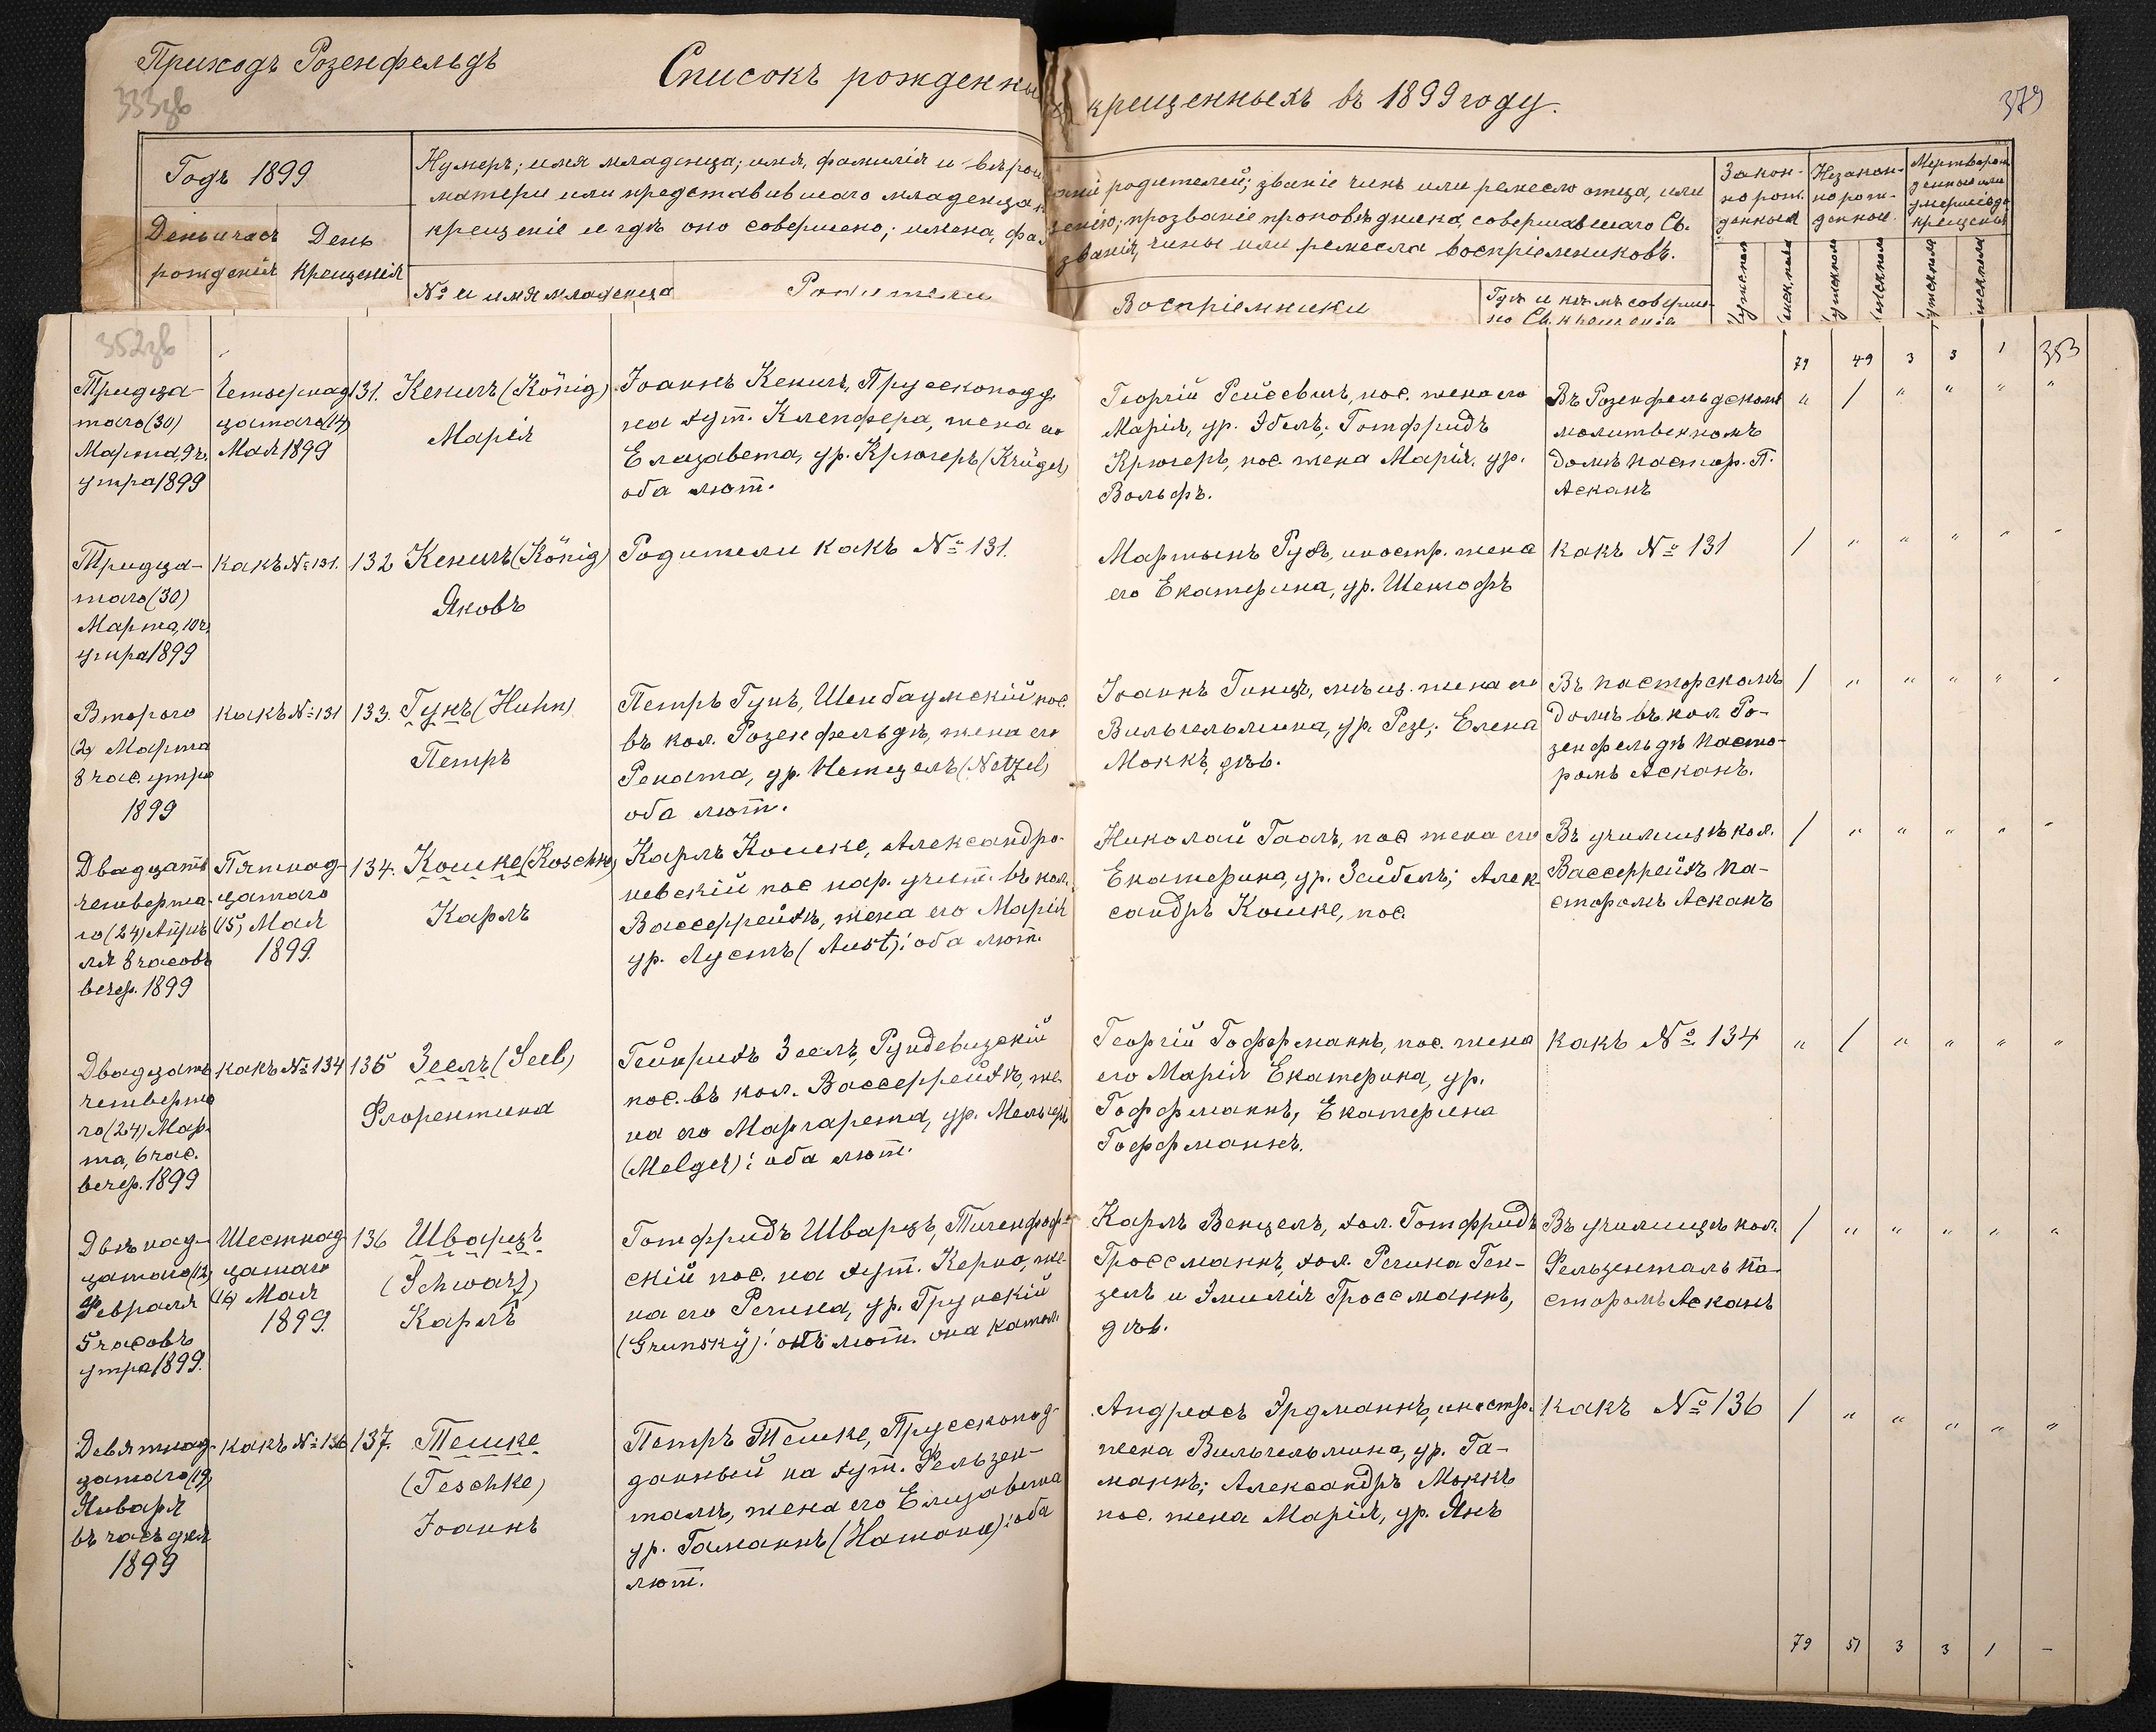 Приходъ Розенфельдъ
Списокъ рожденны
крещенныхъ въ 1899 году.
333зв
379
Годъ 1899
День и часъ рожденія
День Крещенія
Нумеръ; имя младенца; имя, фамилія и вѣро
матери или представившаго младенца к
крещеніе и гдѣ оно совершено; имена, фа
№ и имя младенца
Родители
родителей; званіе чинъ или ремесло отца, или
прозваніе проповѣдника, совершавшаго Св.
званія, чины или ремесла воспріемниковъ.
Воспріемники
Гдѣ и кѣмъ соверше-
но Св. крещеніе
Закон-
но рож-
денные
Незакон-
но рож-
денное
Мертворож
денные или
умершіе до
крещенія
352зв
71 49 3 3 1
353
Тридца-
таго (30)
Марта, 9ч.
утра 1899
Четырнад
цатаго (14)
Мая 1899
131. Кенигъ (König)
Марія
Іоаннъ Кенигъ, Прусскоподд.
на хут. Клепфера, жена его
Елизавета, ур. Крюгеръ (Krüger)
оба лют.
Георгій Рейсвигъ, пос. жена его
Марія, ур. Эбелъ; Готфридъ
Крюгеръ, пос. жена Марія, ур.
Вольфъ.
Въ Розенфельдскомъ
молитвенномъ
домѣ пастор. П.
Асканъ
" / " " " "
Тридца-
таго (30)
Марта, 10ч.
утра 1899
какъ №131.
132 Кенигъ (König)
Яковъ
Родители какъ № 131.
Мартынъ Рубъ, иностр. жена
его Екатерина, ур. Шентофъ
какъ № 131
/ " " " " "
Второго
(2) Марта
8 час. утра
1899
какъ №131
133. Гунъ (Huhn)
Петръ
Петръ Гунъ, Шенбаумскій пос.
въ кол. Розенфельдъ, жена его
Рената, ур. Нетцелъ (Netzel)
оба лют.
Іоаннъ Гинцъ, мѣщ. жена его
Вильгельмина, ур. Резе; Елена
Моккъ, дѣв.
Въ пасторскомъ
домѣ въ кол. Ро-
зенфельдъ пасто-
ромъ Асканъ.
/ " " " " "
Двадцать
четверта-
го (24) Апрѣ
ля 8 часовъ
вечер. 1899
Пятнад-
цатаго
(15) Мая
1899.
134. Кошке (Koschke)
Карлъ
Карлъ Кошке, Александро-
невскій пос. нар. учит. въ кол.
Вассеррейхъ, жена его Марія
ур. Аустъ (Aust): оба лют.
Николай Гаалъ, пос. жена его
Екатерина, ур. Зейбелъ; Алек-
сандръ Кошке, пос.
Въ училищѣ кол.
Вассеррейхъ Па-
сторомъ Асканъ
/ " " " " "
Двадцать
четверта
го (24) Мар-
та, 6 час.
вечер. 1899
какъ №134
135 Зеелъ (Seel)
Флорентина
Гейнрихъ Зеелъ, Рундевизскій
пос. въ кол. Вассеррейхъ, же-
на его Маргарета, ур. Мельгеръ
(Melger): оба лют.
Георгій Гоффманнъ, пос. жена
его Марія Екатерина, ур.
Гоффманнъ, Екатерина
Гоффманнъ.
какъ № 134
" / " " " "
Двѣнад-
цатаго (12)
Февраля
5 часовъ
утра 1899.
Шестнад
цатаго
(16) Мая
1899.
136 Шварцъ
(Schwarz)
Карлъ
Готфридъ Шварцъ, Тигенфоф-
скій пос. на хут. Керно, же-
на его Регина, ур. Грунскій
(Grunsky): онъ лют. она катол.
Карлъ Венцелъ, кол. Готфридъ
Гроссманнъ, кол. Регина Ген-
зелъ и Эмилія Гроссманнъ,
дѣв.
Въ училищѣ кол.
Фельзенталь Па-
сторомъ Асканъ
/ " " " " "
Девятнад-
цатаго (19)
Января
въ часъ дня
1899
какъ №136
137. Тешке
(Teschke)
Іоаннъ
Петръ Тешке, Прусскопод-
данный на хут. Фельзен-
таль, жена его Елизавета
ур. Гаманнъ (Hamann): оба
лют.
Андреасъ Эрдманнъ, иностр.
жена Вильгельмина, ур. Га-
маннъ; Александръ Моккъ
пос. жена Марія, ур. Янъ
какъ № 136
/ " " " " "
79 51 3 3 1 -